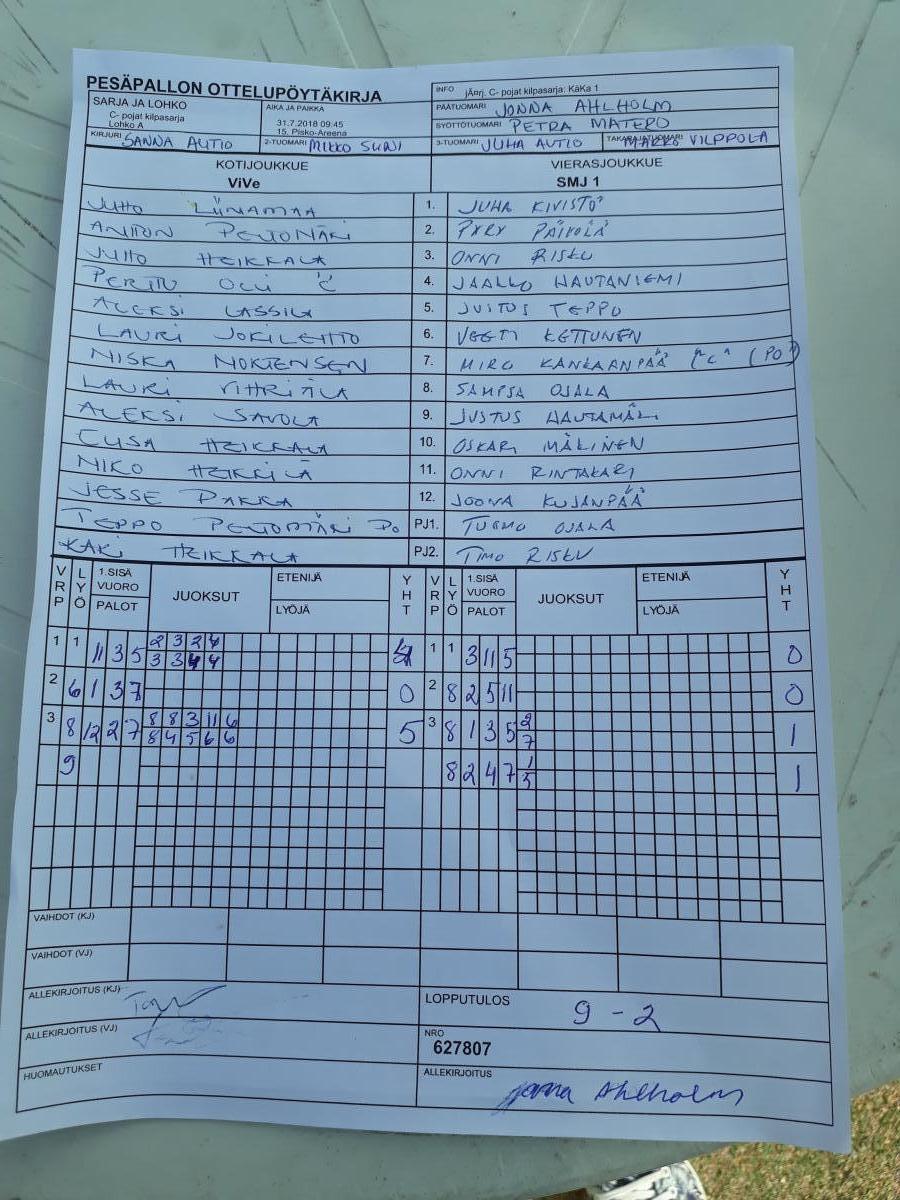 PESÄPALLON OTTELUPÖYTÄKIRJA
INFO jÄrrj. C- pojat kilpasarja: KaKa 1
SARJA JA LOHKO
C- pojat kilpasarja
Lohko A
AIKA JA PAIKKA
31.7.2018 09:45
15. Pisko-Areena
PÄÄTUOMARI JONNA AHLHOLM
SYÖTTÖTUOMARI PETRA MATERO
KIRJURI SANNA AUTIO
2-TUOMARI MIKKO SUNI
3-TUOMARI JUHA AUTIO
TAKARAJATUOMARI MARKO VILPPOLA
KOTIJOUKKUE
ViVe
VIERASJOUKKUE
SMJ 1
JUHO LIINAMAA 1. JUHA KIVISTÖ
ANTTON PELTOMÄKI 2. PYRY PÄIVÖLÄ
JUHO HEIKKALA 3. ONNI RISKU
PERTTU OLLI "C" 4. JAAKKO HAUTANIEMI
ALEKSI LASSILA 5. JUSTUS TEPPO
LAURI JOKILEHTO 6. VEETI KETTUNEN
MISKA MORTENSEN 7. MIRO KANKAANPÄÄ "C" (PO)
LAURI YLIHRIÄLÄ 8. SAMPSA OJALA
ALEKSI SAVOLA 9. JUSTUS HAUTAMÄKI
ELISA HEIKKALA 10. OSKARI MÄKINEN
NIKO HEIKKILÄ 11. ONNI RINTAKARI
JESSE PAKKA 12. JOONA KUJANPÄÄ
TEPPO PELTOMÄKI PO PJ1. TUOMO OJALA
KARI HEIKKALA PJ2. TIMO RISKU
VRP LYÖ 1.SISÄ VUORO PALOT JUOKSUT ETENIJÄ LYÖJÄ YHT VRP LYÖ 1.SISÄ VUORO PALOT JUOKSUT ETENIJÄ LYÖJÄ YHT
1 1 11 3 5 2 3 2 4 4 1 1 3 11 5 0
3 3 4 4
2 6 1 3 7 0 2 8 2 5 11 0
3 8 12 2 7 8 8 3 11 6 5 3 8 1 3 5 2 1
8 4 5 6 6 7
9 8 2 4 7 1 1
5
VAIHDOT (KJ)
VAIHDOT (VJ)
ALLEKIRJOITUS (KJ)
LOPPUTULOS 9 - 2
ALLEKIRJOITUS (VJ)
NRO
627807
HUOMAUTUKSET
ALLEKIRJOITUS Jonna Ahlholm